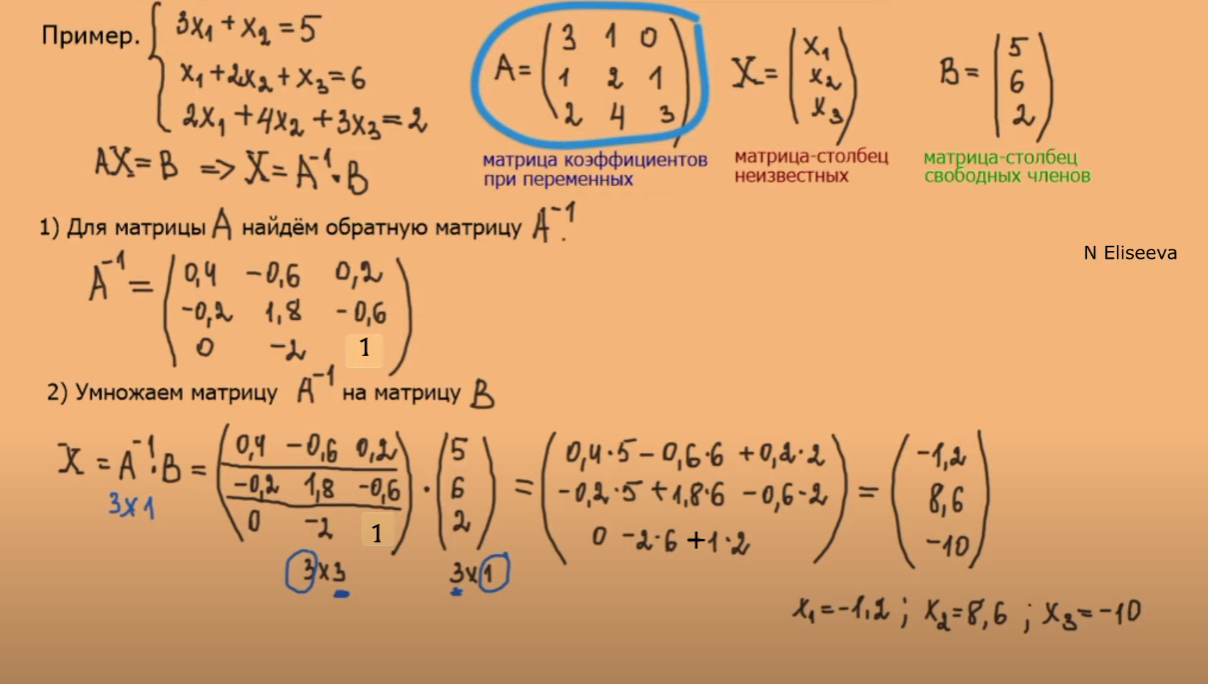 Пример. 3x₁ + x₂ = 5
x₁ + 2x₂ + x₃ = 6
2x₁ + 4x₂ + 3x₃ = 2
A = ( 3 1 0
1 2 1
2 4 3 )
X = ( x₁
x₂
x₃ )
B = ( 5
6
2 )
матрица коэффициентов
при переменных
матрица-столбец
неизвестных
матрица-столбец
свободных членов
AX = B => X = A⁻¹·B
1) Для матрицы A найдём обратную матрицу A⁻¹.
N Eliseeva
A⁻¹ = ( 0,4 -0,6 0,2
-0,2 1,8 -0,6
0 -2 1 )
2) Умножаем матрицу A⁻¹ на матрицу B
X = A⁻¹·B = ( 0,4 -0,6 0,2
-0,2 1,8 -0,6
0 -2 1 ) · ( 5
6
2 ) = ( 0,4·5 - 0,6·6 + 0,2·2
-0,2·5 + 1,8·6 - 0,6·2
0 - 2·6 + 1·2 ) = ( -1,2
8,6
-10 )
3x1
3x3
3x1
x₁ = -1,2 ; x₂ = 8,6 ; x₃ = -10